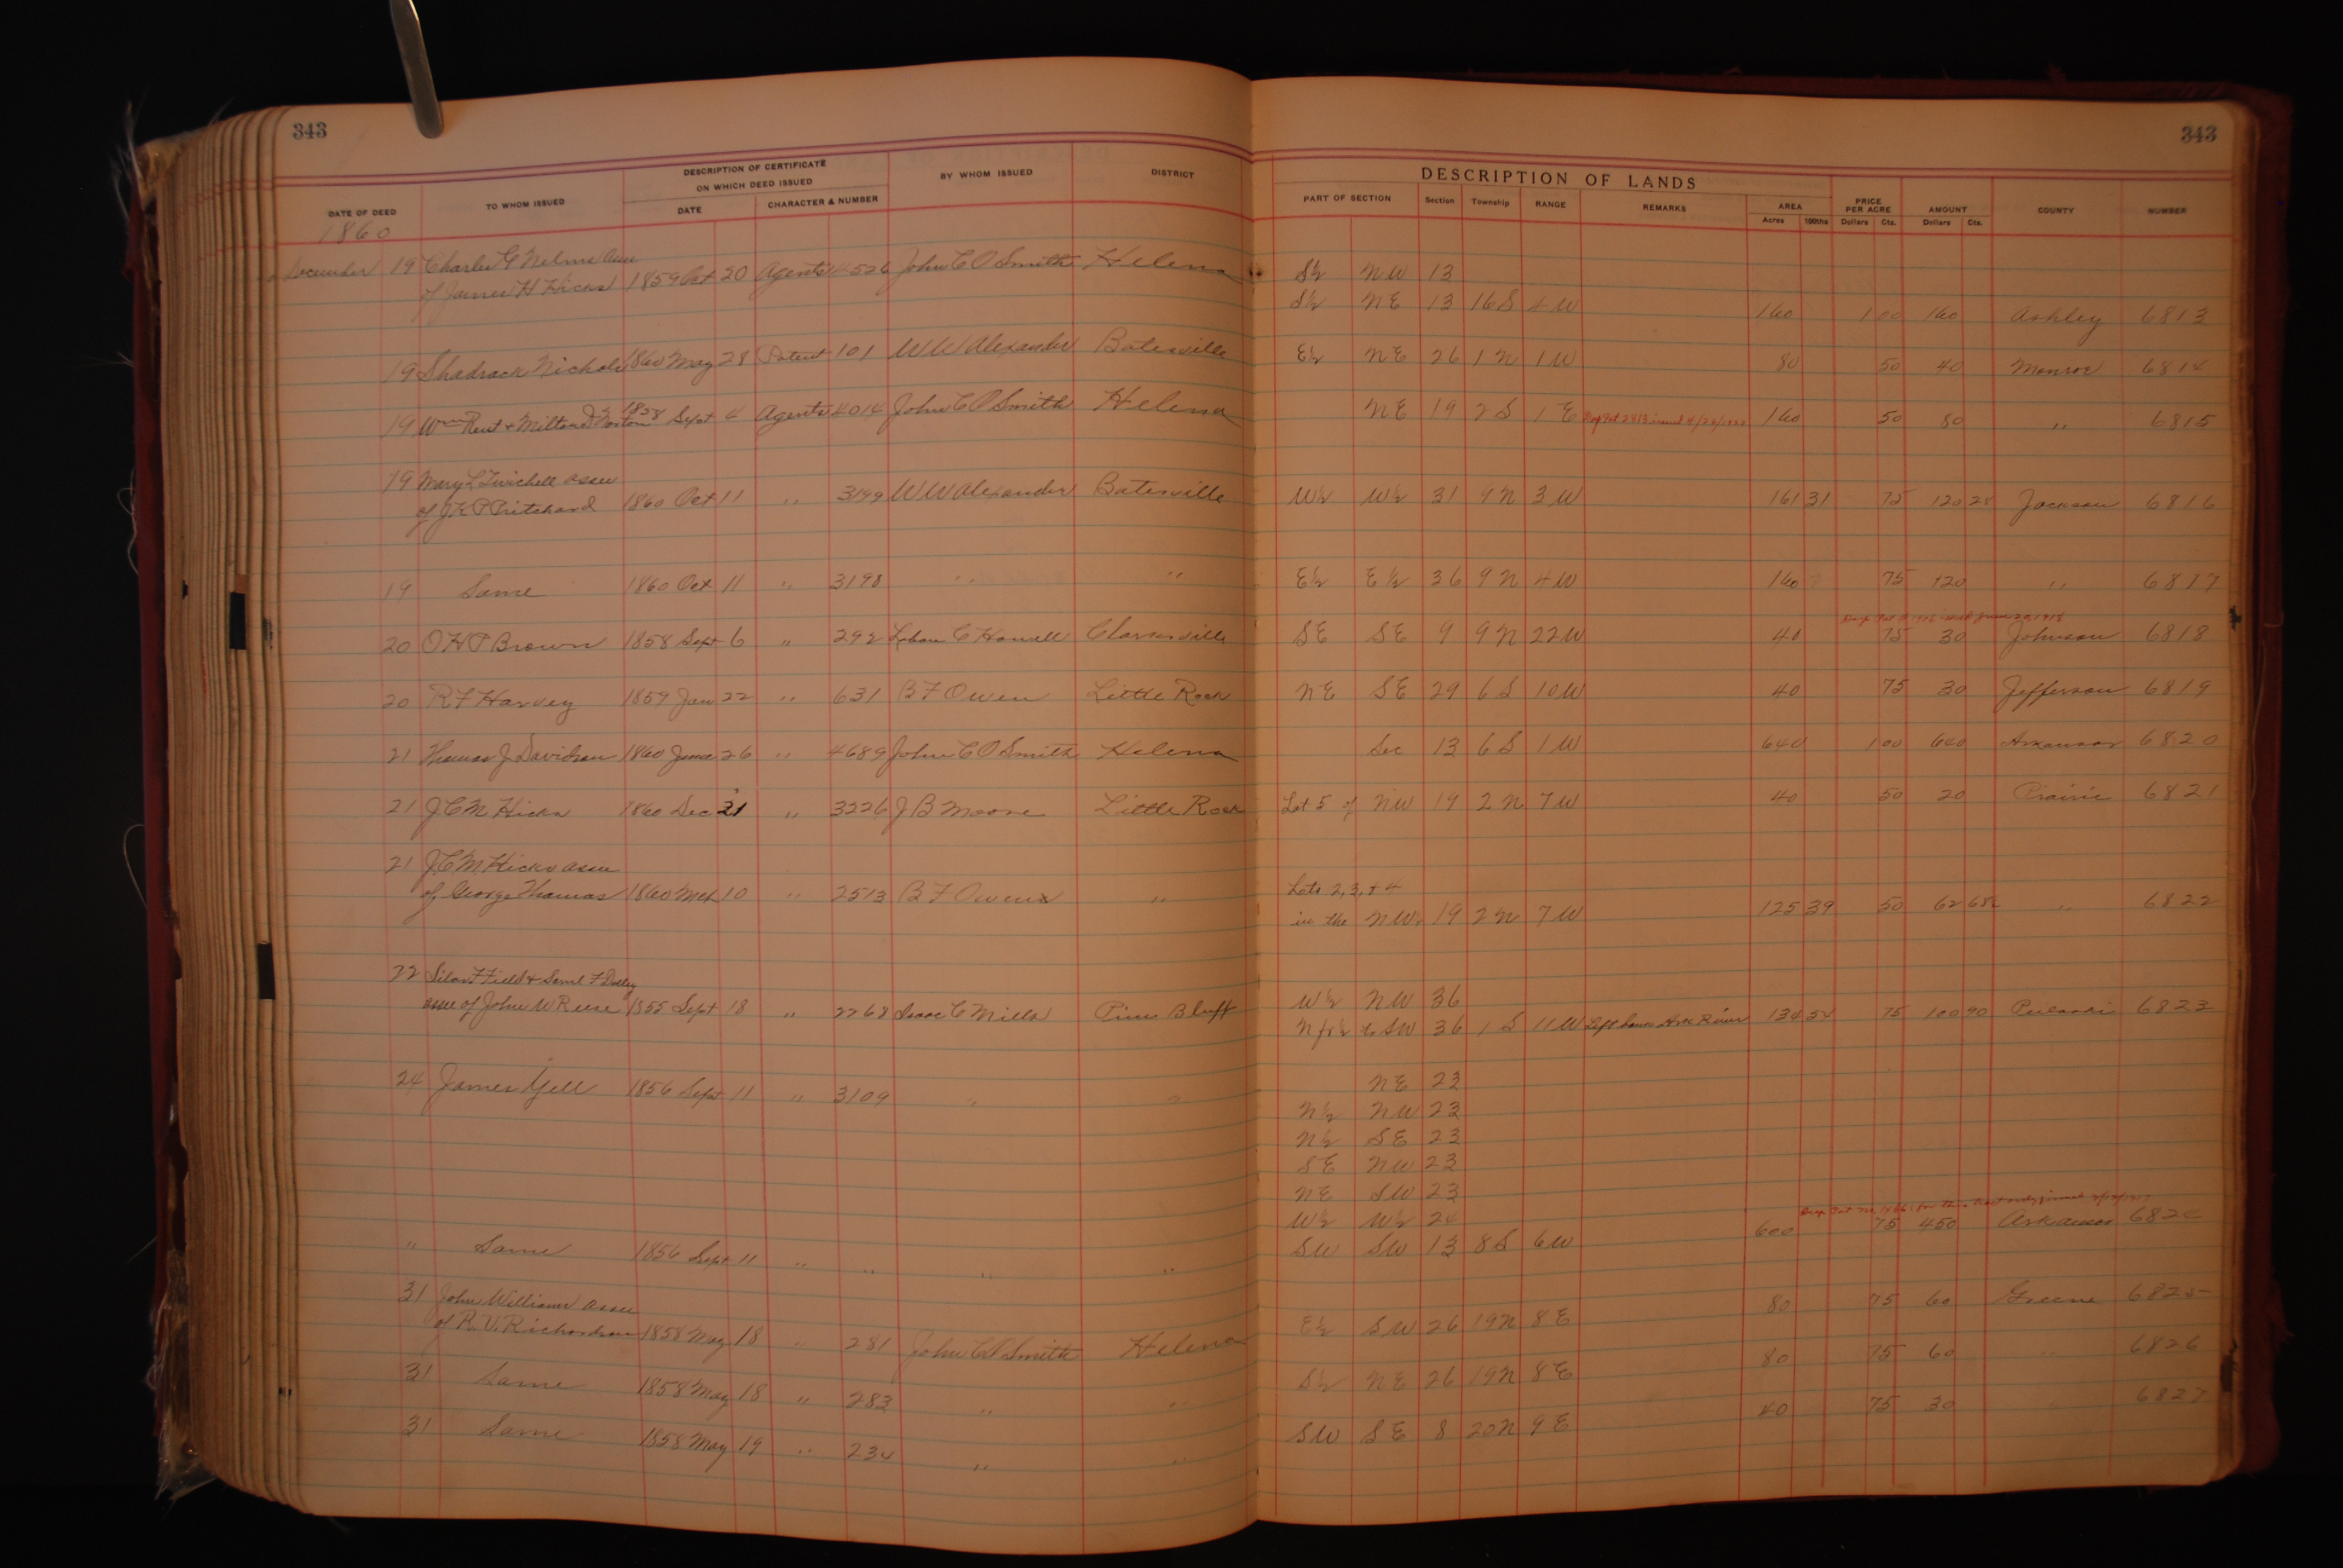 343 343
DESCRIPTION OF CERTIFICATE ON WHICH DEED ISSUED
DATE OF DEED TO WHOM ISSUED DATE CHARACTER & NUMBER BY WHOM ISSUED DISTRICT
DESCRIPTION OF LANDS
PART OF SECTION Section Township RANGE REMARKS AREA PRICE PER ACRE AMOUNT COUNTY NUMBER
Acres 100ths Dollars Cts. Dollars Cts.
1860
December 19 Charles G Nelms assee
of James H Hicks 1859 Oct 20 Agents 4526 John C O Smith Helena S½ NW 13
S½ NE 13 16 S 4 W 160 1 00 160 Ashley 6813
19 Shadrack Nichols 1860 May 28 Patent 101 W W Alexander Batesville E½ NE 26 1 N 1 W 80 50 40 Monroe 6814
19 Wm Rent & Milton D Norton 1858 Sept 4 Agents 4014 John C O Smith Helena NE 19 2 S 1 E 160 50 80 " 6815
19 Mary L Twichell assee
of J K P Pritchard 1860 Oct 11 " 3199 W W Alexander Batesville W½ W½ 31 9 N 3 W 161 31 75 120 28 Jackson 6816
19 Same 1860 Oct 11 " 3198 " " E½ E½ 36 9 N 4 W 160 75 120 " 6817
20 O H P Brown 1858 Sept 6 " 292 Laban C Howell Clarksville SE SE 9 9 N 22 W 40 75 30 Johnson 6818
20 R F Harvey 1859 Jan 22 " 631 B F Owen Little Rock NE SE 29 6 S 10 W 40 75 30 Jefferson 6819
21 Thomas J Davidson 1860 June 26 " 4689 John C O Smith Helena Sec 13 6 S 1 W 640 1 00 640 Arkansas 6820
21 J C M Hicks 1860 Dec 21 " 3226 J B Moore Little Rock Lot 5 of NW 19 2 N 7 W 40 50 20 Prairie 6821
21 J C M Hicks assee
of George Thomas 1860 Mch 10 " 2513 B F Owens " Lots 2, 3, & 4
in the NW 19 2 N 7 W 125 39 50 62 68 " 6822
22 Silas F Field & Saml F Dolley
assee of John W Reese 1855 Sept 18 " 2268 Isaac C Mills Pine Bluff W½ NW 36
N fr ½ SW 36 1 S 11 W Left bank Ark River 134 54 75 100 90 Pulaski 6823
24 James Yell 1856 Sept 11 " 3109 " " NE 23
N½ NW 23
N½ SE 23
SE NW 23
NE SW 23
W½ W½ 24
" Same 1856 Sept 11 " " " " SW SW 13 8 S 6 W 600 75 450 Arkansas 6824
31 John Williams assee
of R. V. Richardson 1858 May 18 " 281 John C O Smith Helena E½ SW 26 19 N 8 E 80 75 60 Greene 6825
31 Same 1858 May 18 " 283 " " S½ NE 26 19 N 8 E 80 75 60 " 6826
31 Same 1858 May 19 " 234 " " SW SE 8 20 N 9 E 40 75 30 " 6827